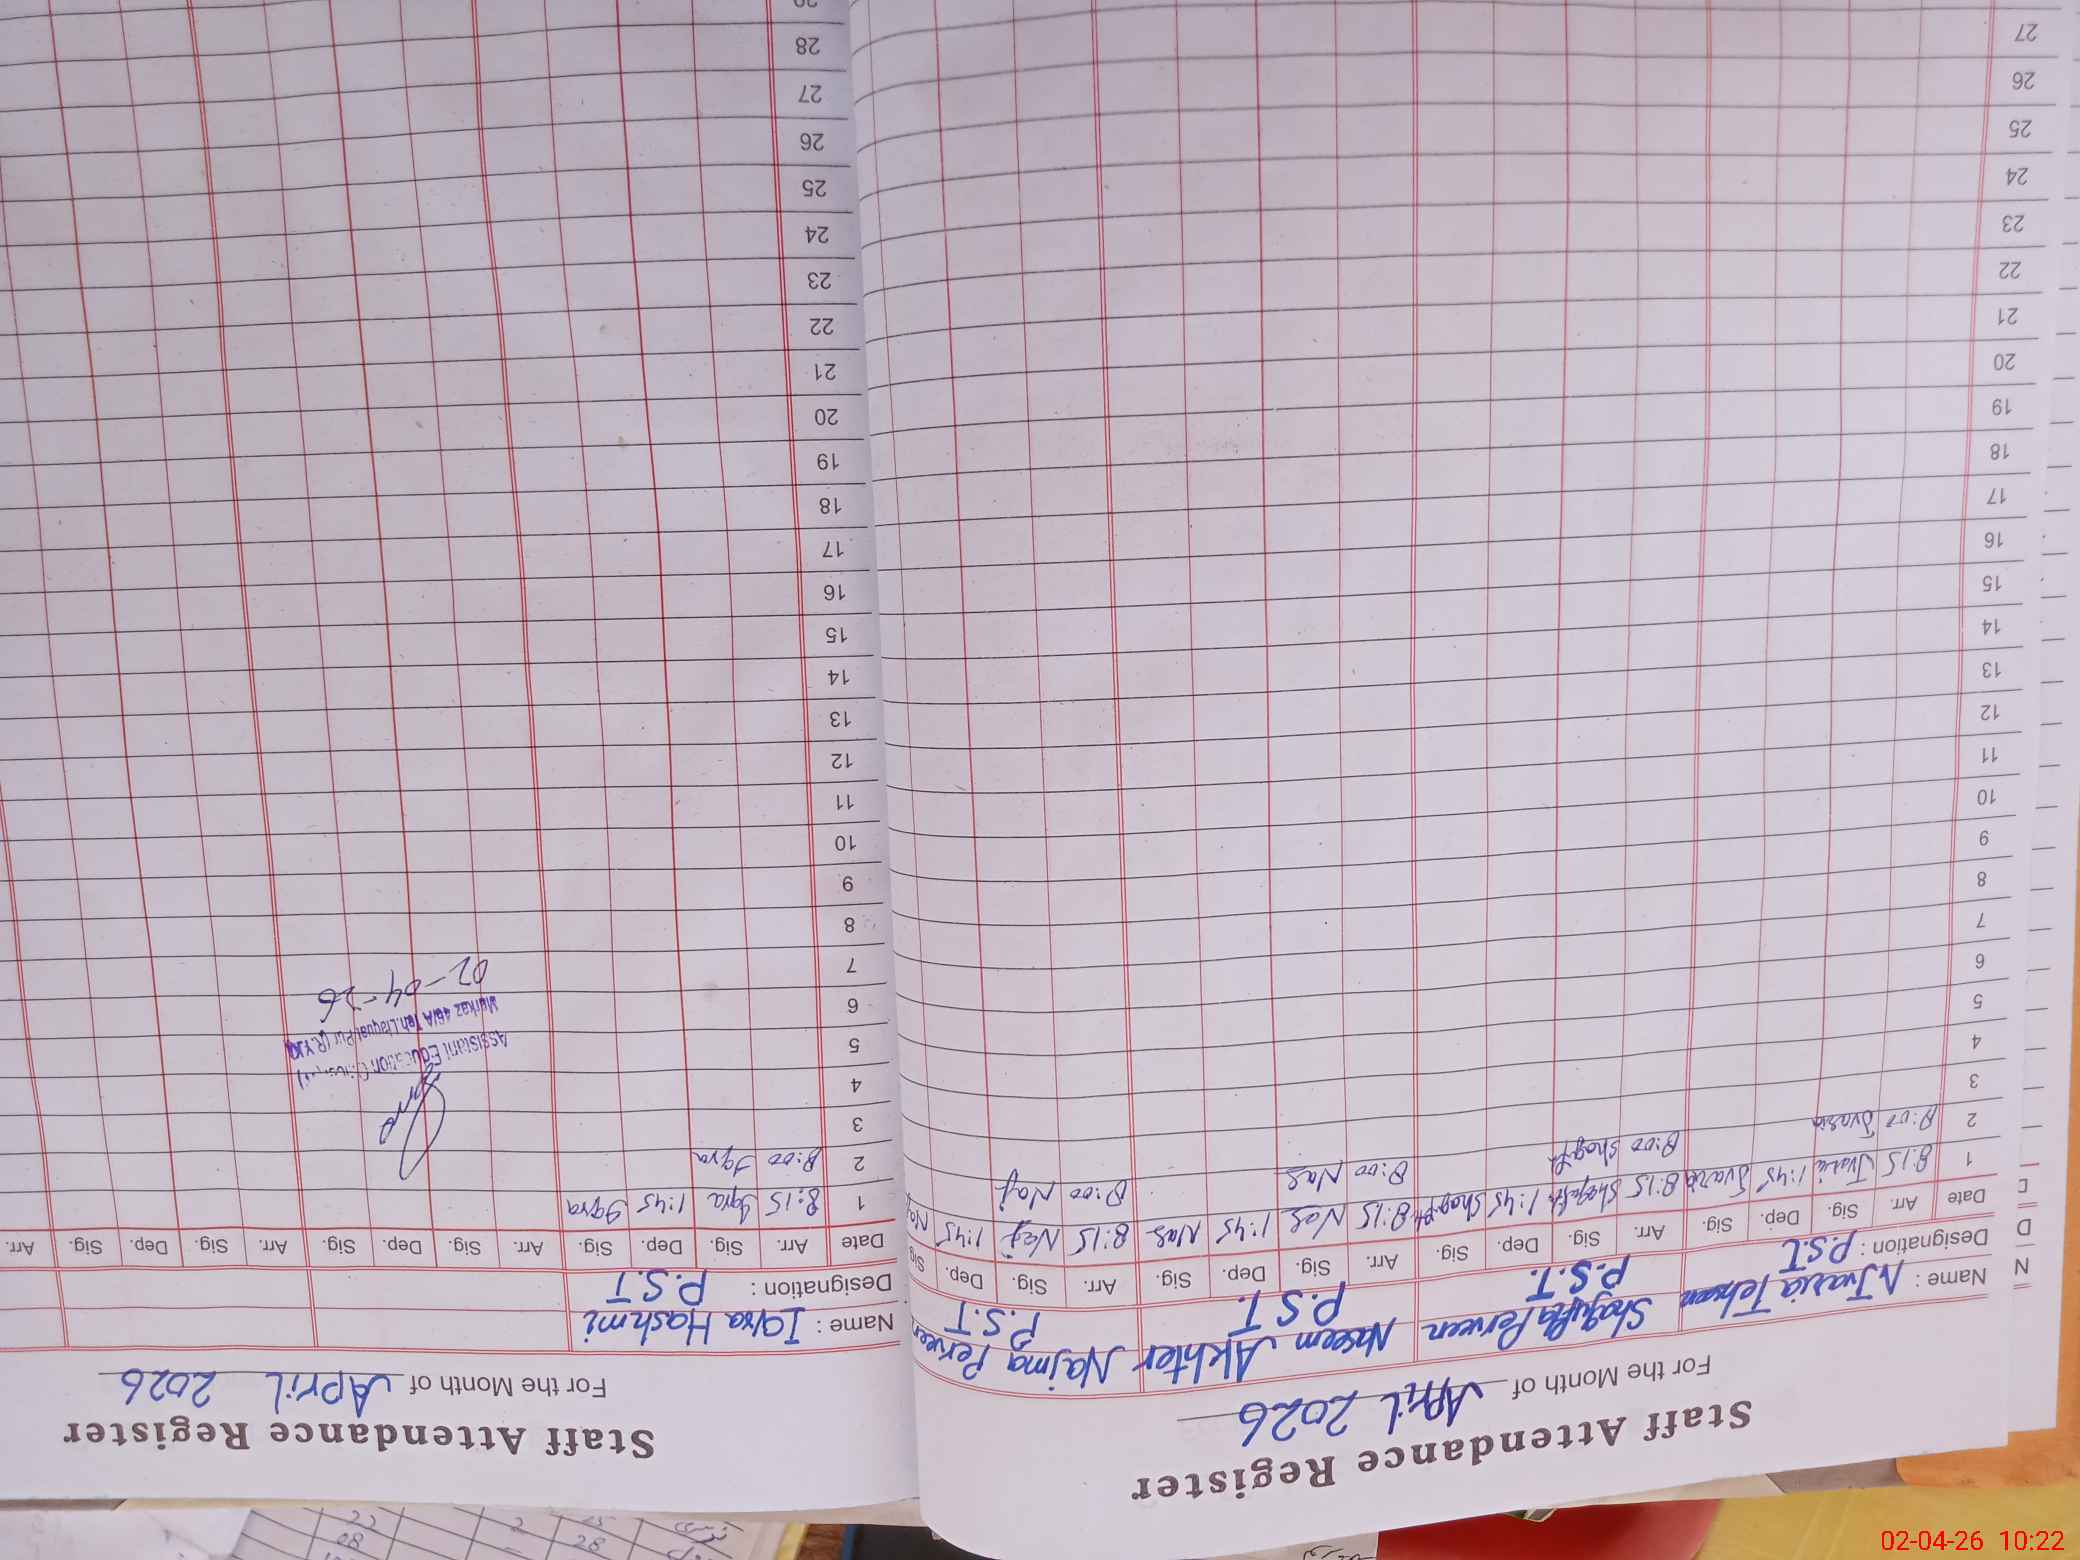 Staff Attendance Register
For the Month of April 2026
Name : Shagufta Perveen Naseem Akhter Najma Perveen
Designation : P.S.T P.S.T. P.S.T. P.S.T
Date Arr. Sig. Dep. Sig. Arr. Sig. Dep. Sig. Arr. Sig. Dep. Sig. Arr. Sig. Dep. Sig
1 8:15 1:45 8:15 1:45 8:15 Nas 1:45 Nas 8:15 Naj 1:45 Naj
2 8:00 8:00 8:00 Nas 8:00 Naj
3
4
5
6
7
8
9
10
11
12
13
14
15
16
17
18
19
20
21
22
23
24
25
26
27
Staff Attendance Register
For the Month of April 2026
Name : Iqra Hashmi
Designation : P.S.T
Date Arr. Sig. Dep. Sig. Arr. Sig. Dep. Sig. Arr. Sig. Dep. Sig. Arr.
1 8:15 Iqra 1:45 Iqra
2 8:00 Iqra
3
4
Assistant Education
5
Markaz 46/A Teh. Liaquat Pur (R.Y.K)
6
02-04-26
7
8
9
10
11
12
13
14
15
16
17
18
19
20
21
22
23
24
25
26
27
28
02-04-26 10:22